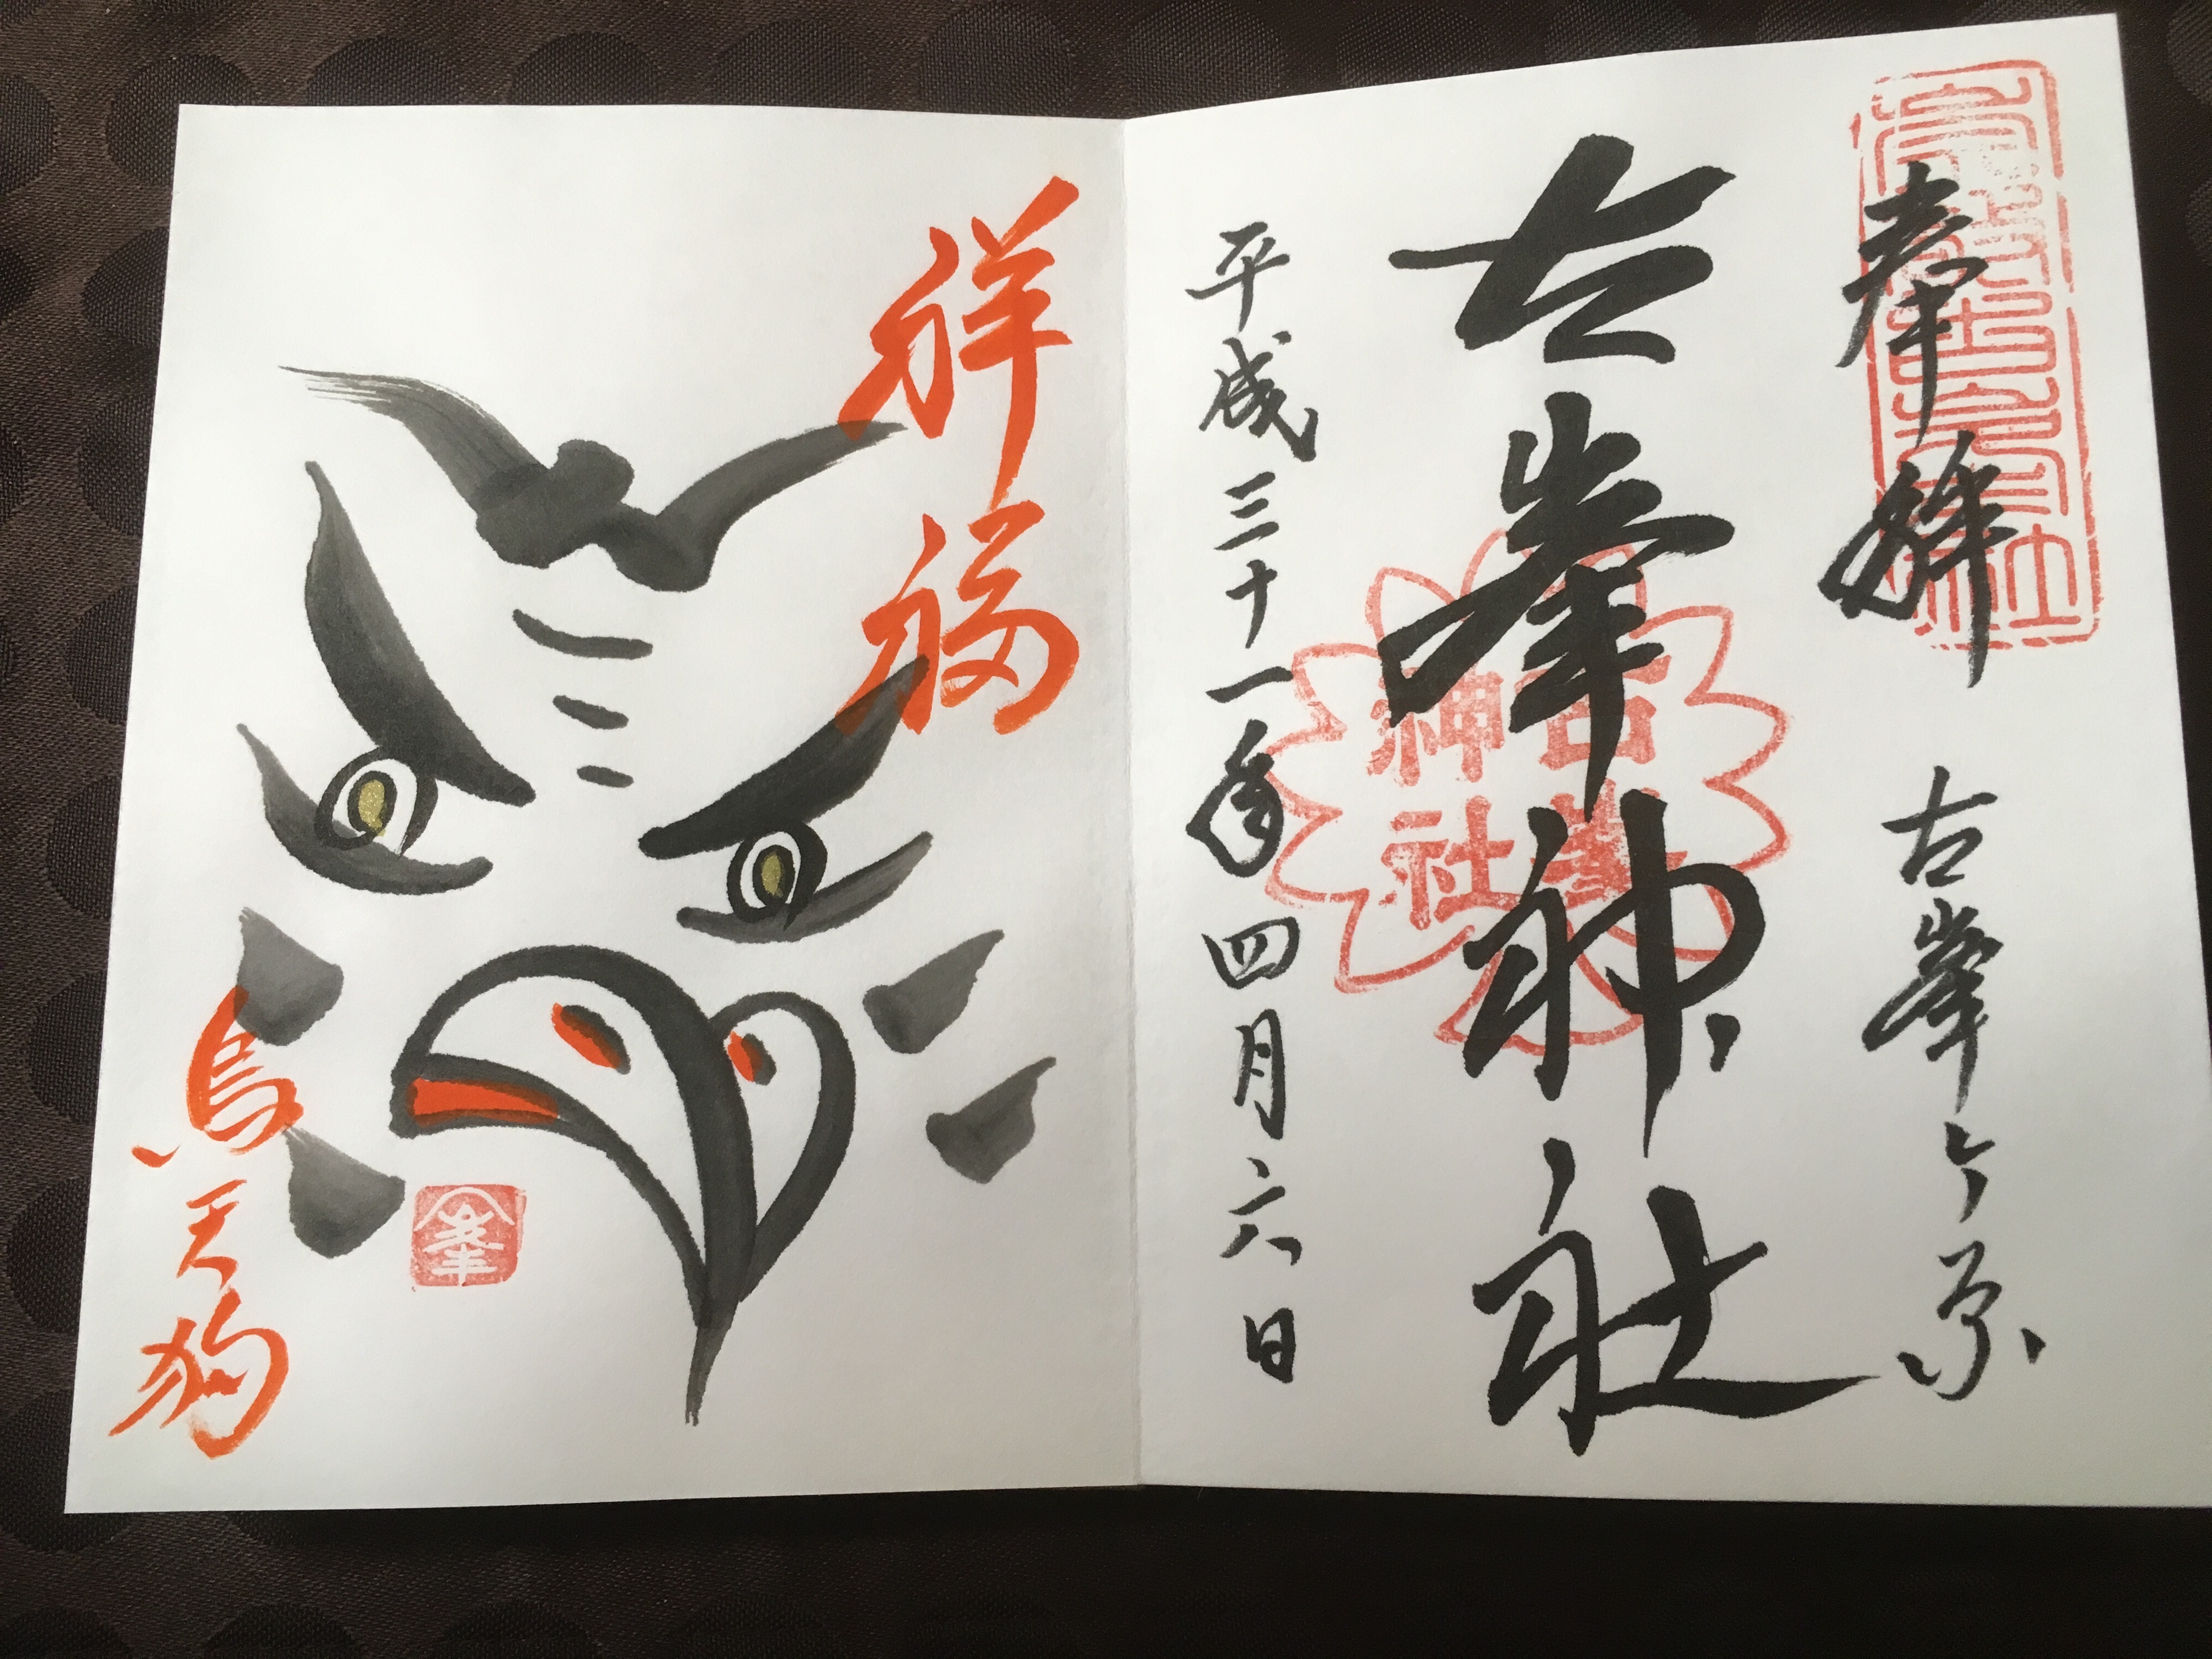 奉拝　古峯ヶ原
古峯神社
古峯
神社
平成三十一年四月六日
祥福
烏天狗
峯